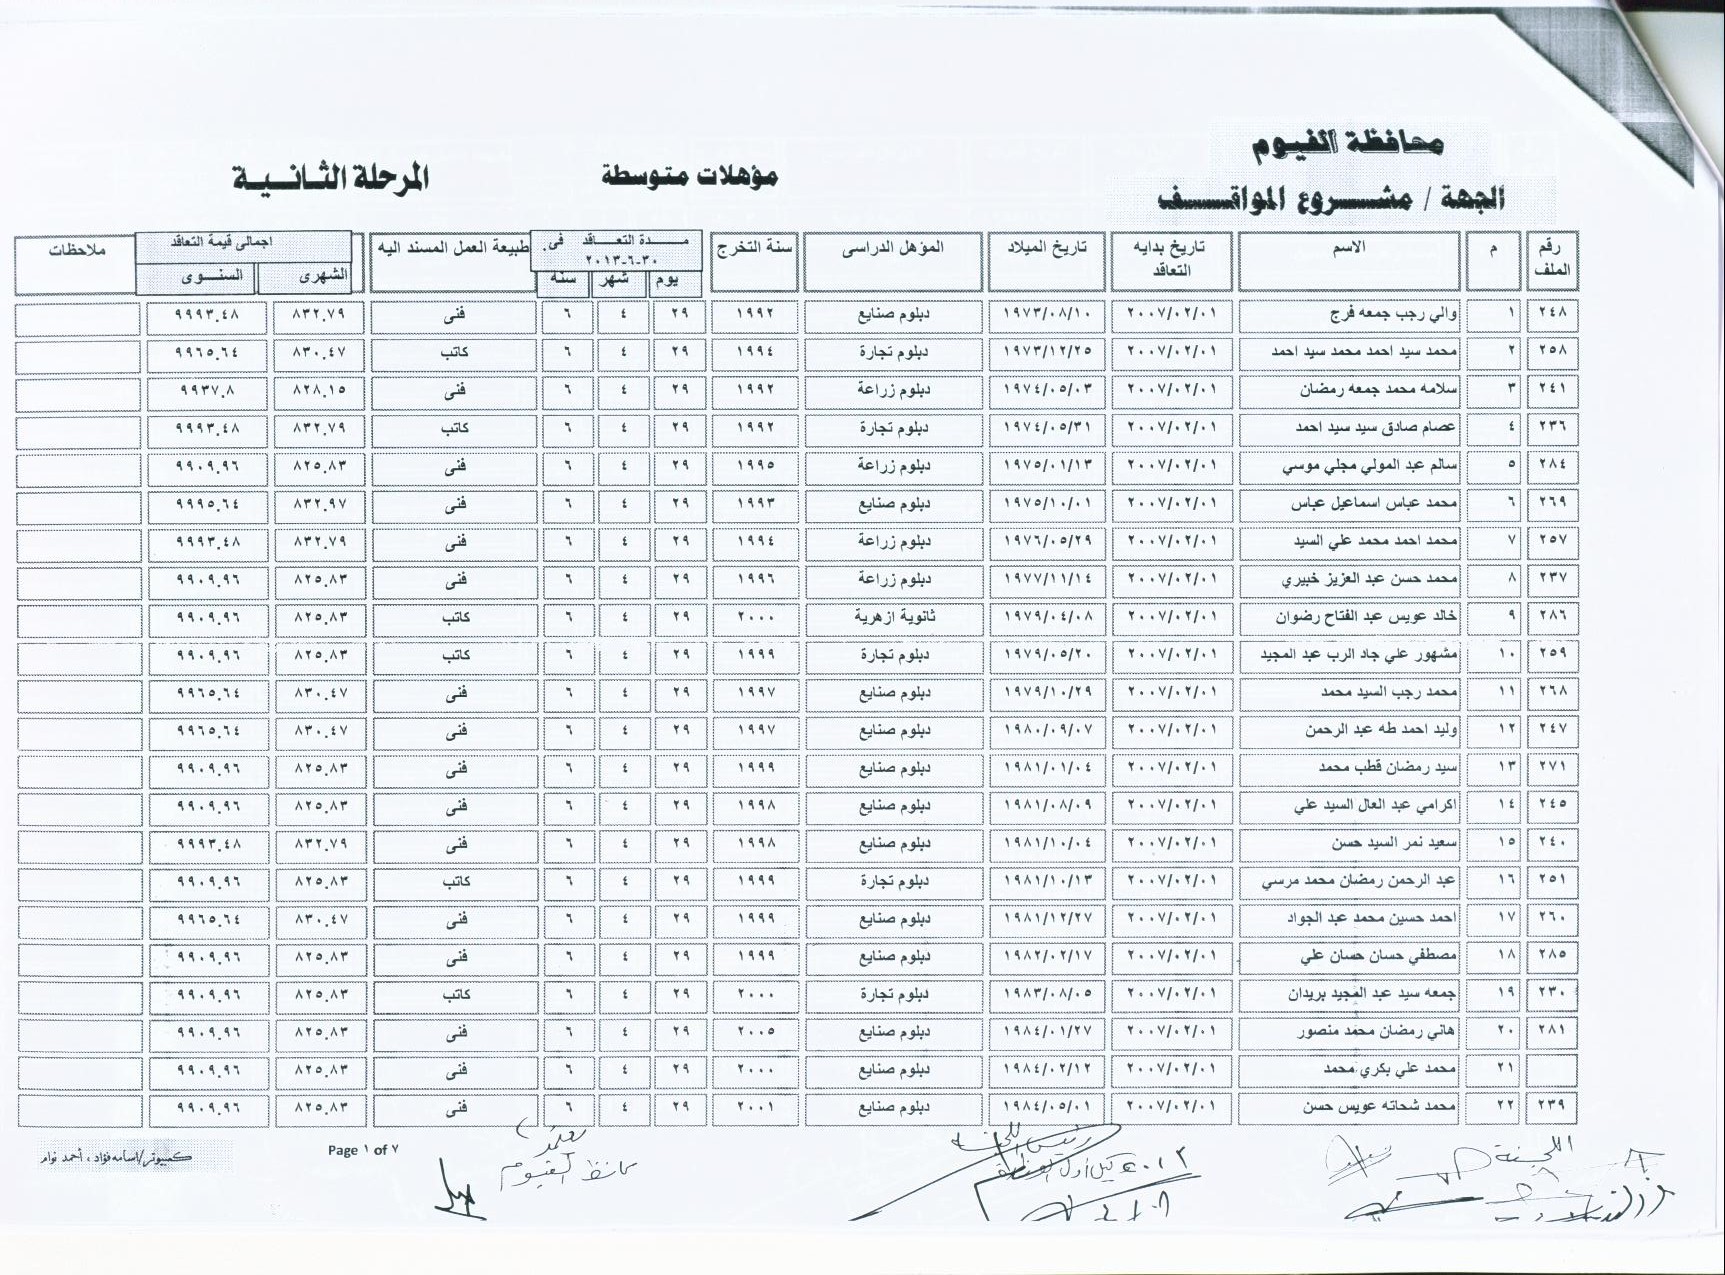 محافظة الفيوم
الجهة / مشروع المواقف
مؤهلات متوسطة
المرحلة الثانية
رقم الملف م الاسم تاريخ بدايه التعاقد تاريخ الميلاد المؤهل الدراسى سنة التخرج مدة التعاقد فى ٣٠-٦-٢٠١٣ يوم شهر سنة طبيعة العمل المسند اليه اجمالى قيمة التعاقد الشهرى السنوى ملاحظات
٢٤٨ ١ والي رجب جمعه فرج ٢٠٠٧/٠٢/٠١ ١٩٧٣/٠٨/١٠ دبلوم صنايع ١٩٩٢ ٢٩ ٤ ٦ فنى ٨٣٢.٧٩ ٩٩٩٣.٤٨
٢٥٨ ٢ محمد سيد احمد محمد سيد احمد ٢٠٠٧/٠٢/٠١ ١٩٧٣/١٢/٢٥ دبلوم تجارة ١٩٩٤ ٢٩ ٤ ٦ كاتب ٨٣٠.٤٧ ٩٩٦٥.٦٤
٢٤١ ٣ سلامه محمد جمعه رمضان ٢٠٠٧/٠٢/٠١ ١٩٧٤/٠٥/٠٣ دبلوم زراعة ١٩٩٢ ٢٩ ٤ ٦ فنى ٨٢٨.١٥ ٩٩٣٧.٨
٢٣٦ ٤ عصام صادق سيد سيد احمد ٢٠٠٧/٠٢/٠١ ١٩٧٤/٠٥/٣١ دبلوم تجارة ١٩٩٢ ٢٩ ٤ ٦ كاتب ٨٣٢.٧٩ ٩٩٩٣.٤٨
٢٨٤ ٥ سالم عبد المولي مجلي موسي ٢٠٠٧/٠٢/٠١ ١٩٧٥/٠١/١٣ دبلوم زراعة ١٩٩٥ ٢٩ ٤ ٦ فنى ٨٢٥.٨٣ ٩٩٠٩.٩٦
٢٦٩ ٦ محمد عباس اسماعيل عباس ٢٠٠٧/٠٢/٠١ ١٩٧٥/١٠/٠١ دبلوم صنايع ١٩٩٣ ٢٩ ٤ ٦ فنى ٨٣٢.٩٧ ٩٩٩٥.٦٤
٢٥٧ ٧ محمد احمد محمد علي السيد ٢٠٠٧/٠٢/٠١ ١٩٧٦/٠٥/٢٩ دبلوم زراعة ١٩٩٤ ٢٩ ٤ ٦ فنى ٨٣٢.٧٩ ٩٩٩٣.٤٨
٢٣٧ ٨ محمد حسن عبد العزيز خبيري ٢٠٠٧/٠٢/٠١ ١٩٧٧/١١/١٤ دبلوم زراعة ١٩٩٦ ٢٩ ٤ ٦ فنى ٨٢٥.٨٣ ٩٩٠٩.٩٦
٢٨٦ ٩ خالد عويس عبد الفتاح رضوان ٢٠٠٧/٠٢/٠١ ١٩٧٩/٠٤/٠٨ ثانوية ازهرية ٢٠٠٠ ٢٩ ٤ ٦ كاتب ٨٢٥.٨٣ ٩٩٠٩.٩٦
٢٥٩ ١٠ مشهور علي جاد الرب عبد المجيد ٢٠٠٧/٠٢/٠١ ١٩٧٩/٠٥/٢٠ دبلوم تجارة ١٩٩٩ ٢٩ ٤ ٦ كاتب ٨٢٥.٨٣ ٩٩٠٩.٩٦
٢٦٨ ١١ محمد رجب السيد محمد ٢٠٠٧/٠٢/٠١ ١٩٧٩/١٠/٢٩ دبلوم صنايع ١٩٩٧ ٢٩ ٤ ٦ فنى ٨٣٠.٤٧ ٩٩٦٥.٦٤
٢٤٧ ١٢ وليد احمد طه عبد الرحمن ٢٠٠٧/٠٢/٠١ ١٩٨٠/٠٩/٠٧ دبلوم صنايع ١٩٩٧ ٢٩ ٤ ٦ فنى ٨٣٠.٤٧ ٩٩٦٥.٦٤
٢٧١ ١٣ سيد رمضان قطب محمد ٢٠٠٧/٠٢/٠١ ١٩٨١/٠١/٠٤ دبلوم صنايع ١٩٩٩ ٢٩ ٤ ٦ فنى ٨٢٥.٨٣ ٩٩٠٩.٩٦
٢٤٥ ١٤ اكرامي عبد العال السيد علي ٢٠٠٧/٠٢/٠١ ١٩٨١/٠٨/٠٩ دبلوم صنايع ١٩٩٨ ٢٩ ٤ ٦ فنى ٨٢٥.٨٣ ٩٩٠٩.٩٦
٢٤٠ ١٥ سعيد نمر السيد حسن ٢٠٠٧/٠٢/٠١ ١٩٨١/١٠/٠٤ دبلوم صنايع ١٩٩٨ ٢٩ ٤ ٦ فنى ٨٣٢.٧٩ ٩٩٩٣.٤٨
٢٥١ ١٦ عبد الرحمن رمضان محمد مرسي ٢٠٠٧/٠٢/٠١ ١٩٨١/١٠/١٣ دبلوم تجارة ١٩٩٩ ٢٩ ٤ ٦ كاتب ٨٢٥.٨٣ ٩٩٠٩.٩٦
٢٦٠ ١٧ احمد حسين محمد عبد الجواد ٢٠٠٧/٠٢/٠١ ١٩٨١/١٢/٢٧ دبلوم صنايع ١٩٩٩ ٢٩ ٤ ٦ فنى ٨٣٠.٤٧ ٩٩٦٥.٦٤
٢٨٥ ١٨ مصطفي حسان حسان علي ٢٠٠٧/٠٢/٠١ ١٩٨٢/٠٢/١٧ دبلوم صنايع ١٩٩٩ ٢٩ ٤ ٦ فنى ٨٢٥.٨٣ ٩٩٠٩.٩٦
٢٣٠ ١٩ جمعه سيد عبد المجيد بريدان ٢٠٠٧/٠٢/٠١ ١٩٨٣/٠٨/٠٥ دبلوم تجارة ٢٠٠٠ ٢٩ ٤ ٦ كاتب ٨٢٥.٨٣ ٩٩٠٩.٩٦
٢٨١ ٢٠ هاني رمضان محمد منصور ٢٠٠٧/٠٢/٠١ ١٩٨٤/٠١/٢٧ دبلوم صنايع ٢٠٠٥ ٢٩ ٤ ٦ فنى ٨٢٥.٨٣ ٩٩٠٩.٩٦
٢١ محمد علي بكري محمد ٢٠٠٧/٠٢/٠١ ١٩٨٤/٠٢/١٢ دبلوم صنايع ٢٠٠٠ ٢٩ ٤ ٦ فنى ٨٢٥.٨٣ ٩٩٠٩.٩٦
٢٣٩ ٢٢ محمد شحاته عويس حسن ٢٠٠٧/٠٢/٠١ ١٩٨٤/٠٥/٠١ دبلوم صنايع ٢٠٠١ ٢٩ ٤ ٦ فنى ٨٢٥.٨٣ ٩٩٠٩.٩٦
اللجنة
رئيس اللجنة
يعتمد
محافظ الفيوم
Page ١ of ٧
كمبيوتر/اسامه فؤاد ، أحمد نوام